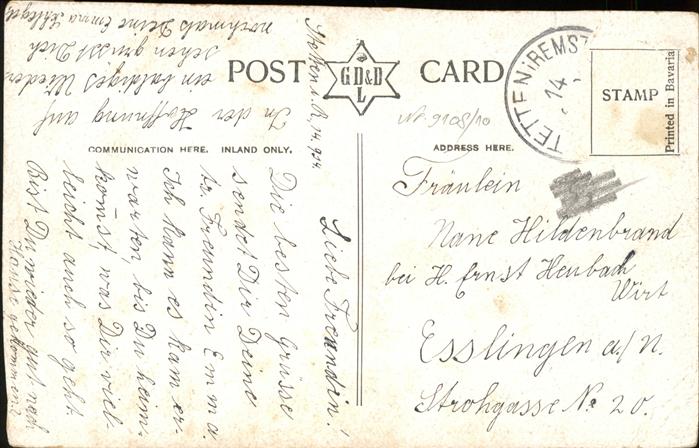 POST CARD
G.D.&D
L
TETTEN i REMST
14
STAMP
Printed in Bavaria
COMMUNICATION HERE. INLAND ONLY.
ADDRESS HERE.
Nr. 9108/10
Fräulein
Nane Hildenbrand
bei H. Ernst Heubach
Wirt
Esslingen a/N.
Strohgasse No 20.
Stetten i. R. 14.
Liebe Freundin!
Die besten Grüsse
sendet Dir Deine
tr. Freundin Emma.
Ich kann es kam er-
warten, bis Du heim-
kom̄st, was Dir viel-
leicht auch so geht.
Bist Du wieder gut nach
Hause gekommen?
In der Hoffnung auf
ein baldiges Wieder
sehen grüsst Dich
nochmals Deine Emma